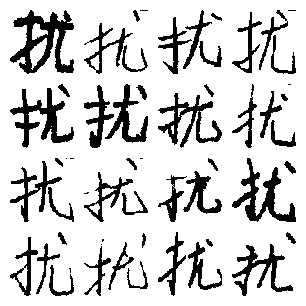 扰扰扰扰
扰扰扰扰
扰扰扰扰
扰扰扰扰